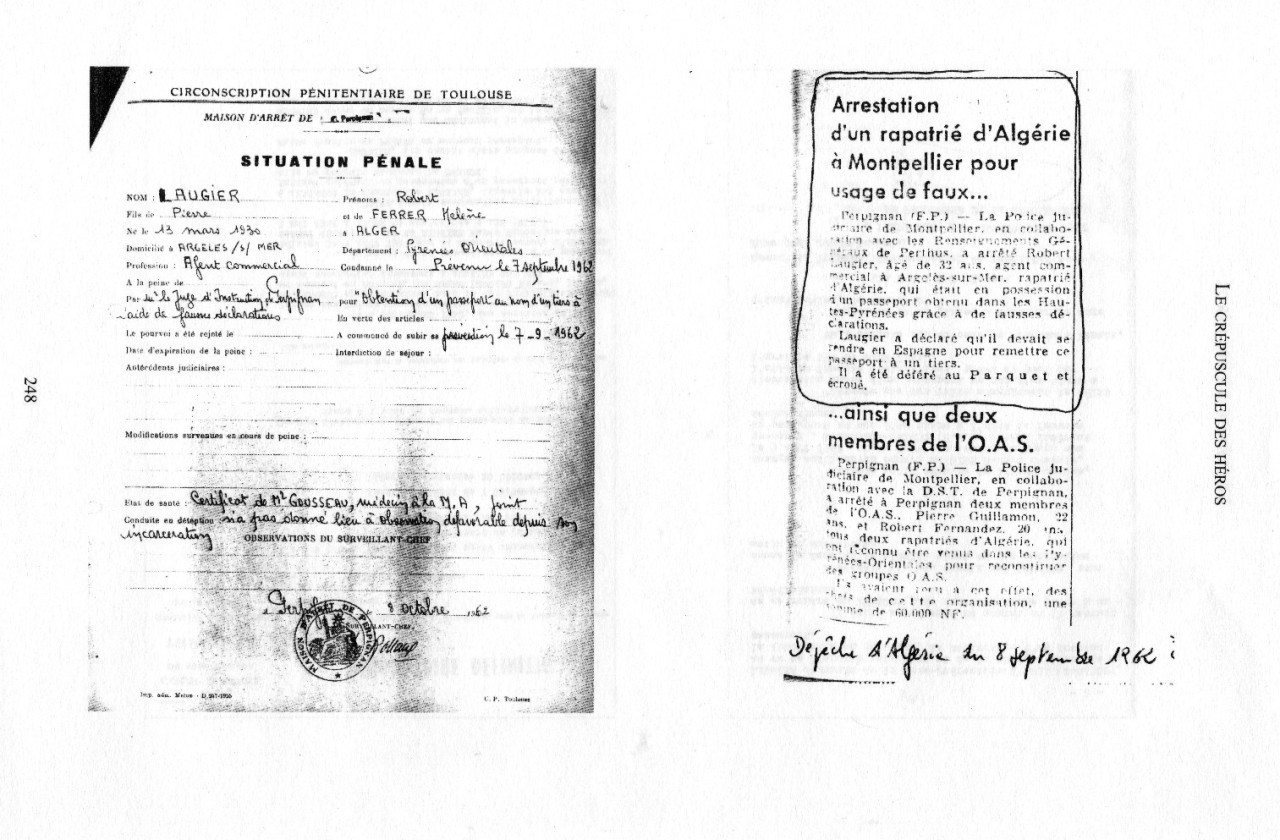 CIRCONSCRIPTION PÉNITENTIAIRE DE TOULOUSE
MAISON D'ARRÊT DE Perpignan
SITUATION PÉNALE
NOM : LAUGIER
Prénoms : Robert
Fils de Pierre
et de FERRER Helène
Né le 13 mars 1930
à ALGER
Domicilié à ARGELES /S/ MER
Département : Pyrénées Orientales
Profession : Agent commercial
Condamné le Prévenu le 7 septembre 1962
A la peine de
Par le Juge d'Instruction Perpignan
pour "Obtention d'un passeport au nom d'un tiers à
l'aide de fausses déclarations
En vertu des articles
Le pourvoi a été rejeté le
A commencé de subir sa prévention le 7-9-1962
Date d'expiration de la peine :
Interdiction de séjour :
Antécédents judiciaires :
Modifications survenues en cours de peine :
Etat de santé : Certificat de Mr GOUSSEAU, médecin à la M.A, joint
Conduite en détention : n'a pas donné lieu à observation défavorable depuis son
incarcération
OBSERVATIONS DU SURVEILLANT-CHEF
8 Octobre 1962
SURVEILLANT-CHEF,
MAISON D'ARRÊT DE PERPIGNAN
Imp. adm. Melun - D
C. P. Toulouse
248
Arrestation
d'un rapatrié d'Algérie
à Montpellier pour
usage de faux...
Perpignan (F.P.) — La Police ju-
diciaire de Montpellier, en collabo-
ration avec les Renseignements Gé-
néraux de Perthus, a arrêté Robert
Laugier, âgé de 32 ans, agent com-
mercial à Argelès-sur-Mer, rapatrié
d'Algérie, qui était en possession
d'un passeport obtenu dans les Hau-
tes-Pyrénées grâce à de fausses dé-
clarations.
Laugier a déclaré qu'il devait se
rendre en Espagne pour remettre ce
passeport à un tiers.
Il a été déféré au Parquet et
écroué.
...ainsi que deux
membres de l'O.A.S.
Perpignan (F.P.) — La Police ju-
diciaire de Montpellier, en collabo-
ration avec la D.S.T. de Perpignan,
a arrêté à Perpignan deux membres
de l'O.A.S., Pierre Guillamon, 22
ans, et Robert Fernandez, 20 ans,
tous deux rapatriés d'Algérie, qui
ont reconnu être venus dans les Py-
rénées-Orientales pour reconstituer
des groupes O.A.S.
Ils avaient reçu à cet effet, des
chefs de cette organisation, une
somme de 60.000 NF.
Dépêche d'Algérie du 8 septembre 1962
LE CRÉPUSCULE DES HÉROS